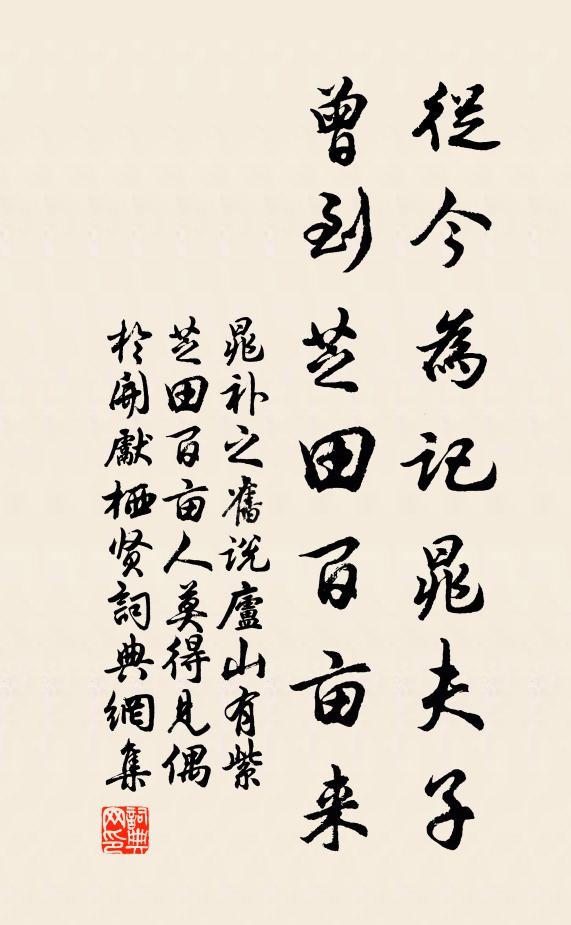 從今為記晁夫子
曾到芝田百亩来
晁补之舊说廬山有紫
芝田百亩人莫得見偶
於開獻栖贤詞典網集
詞典网印